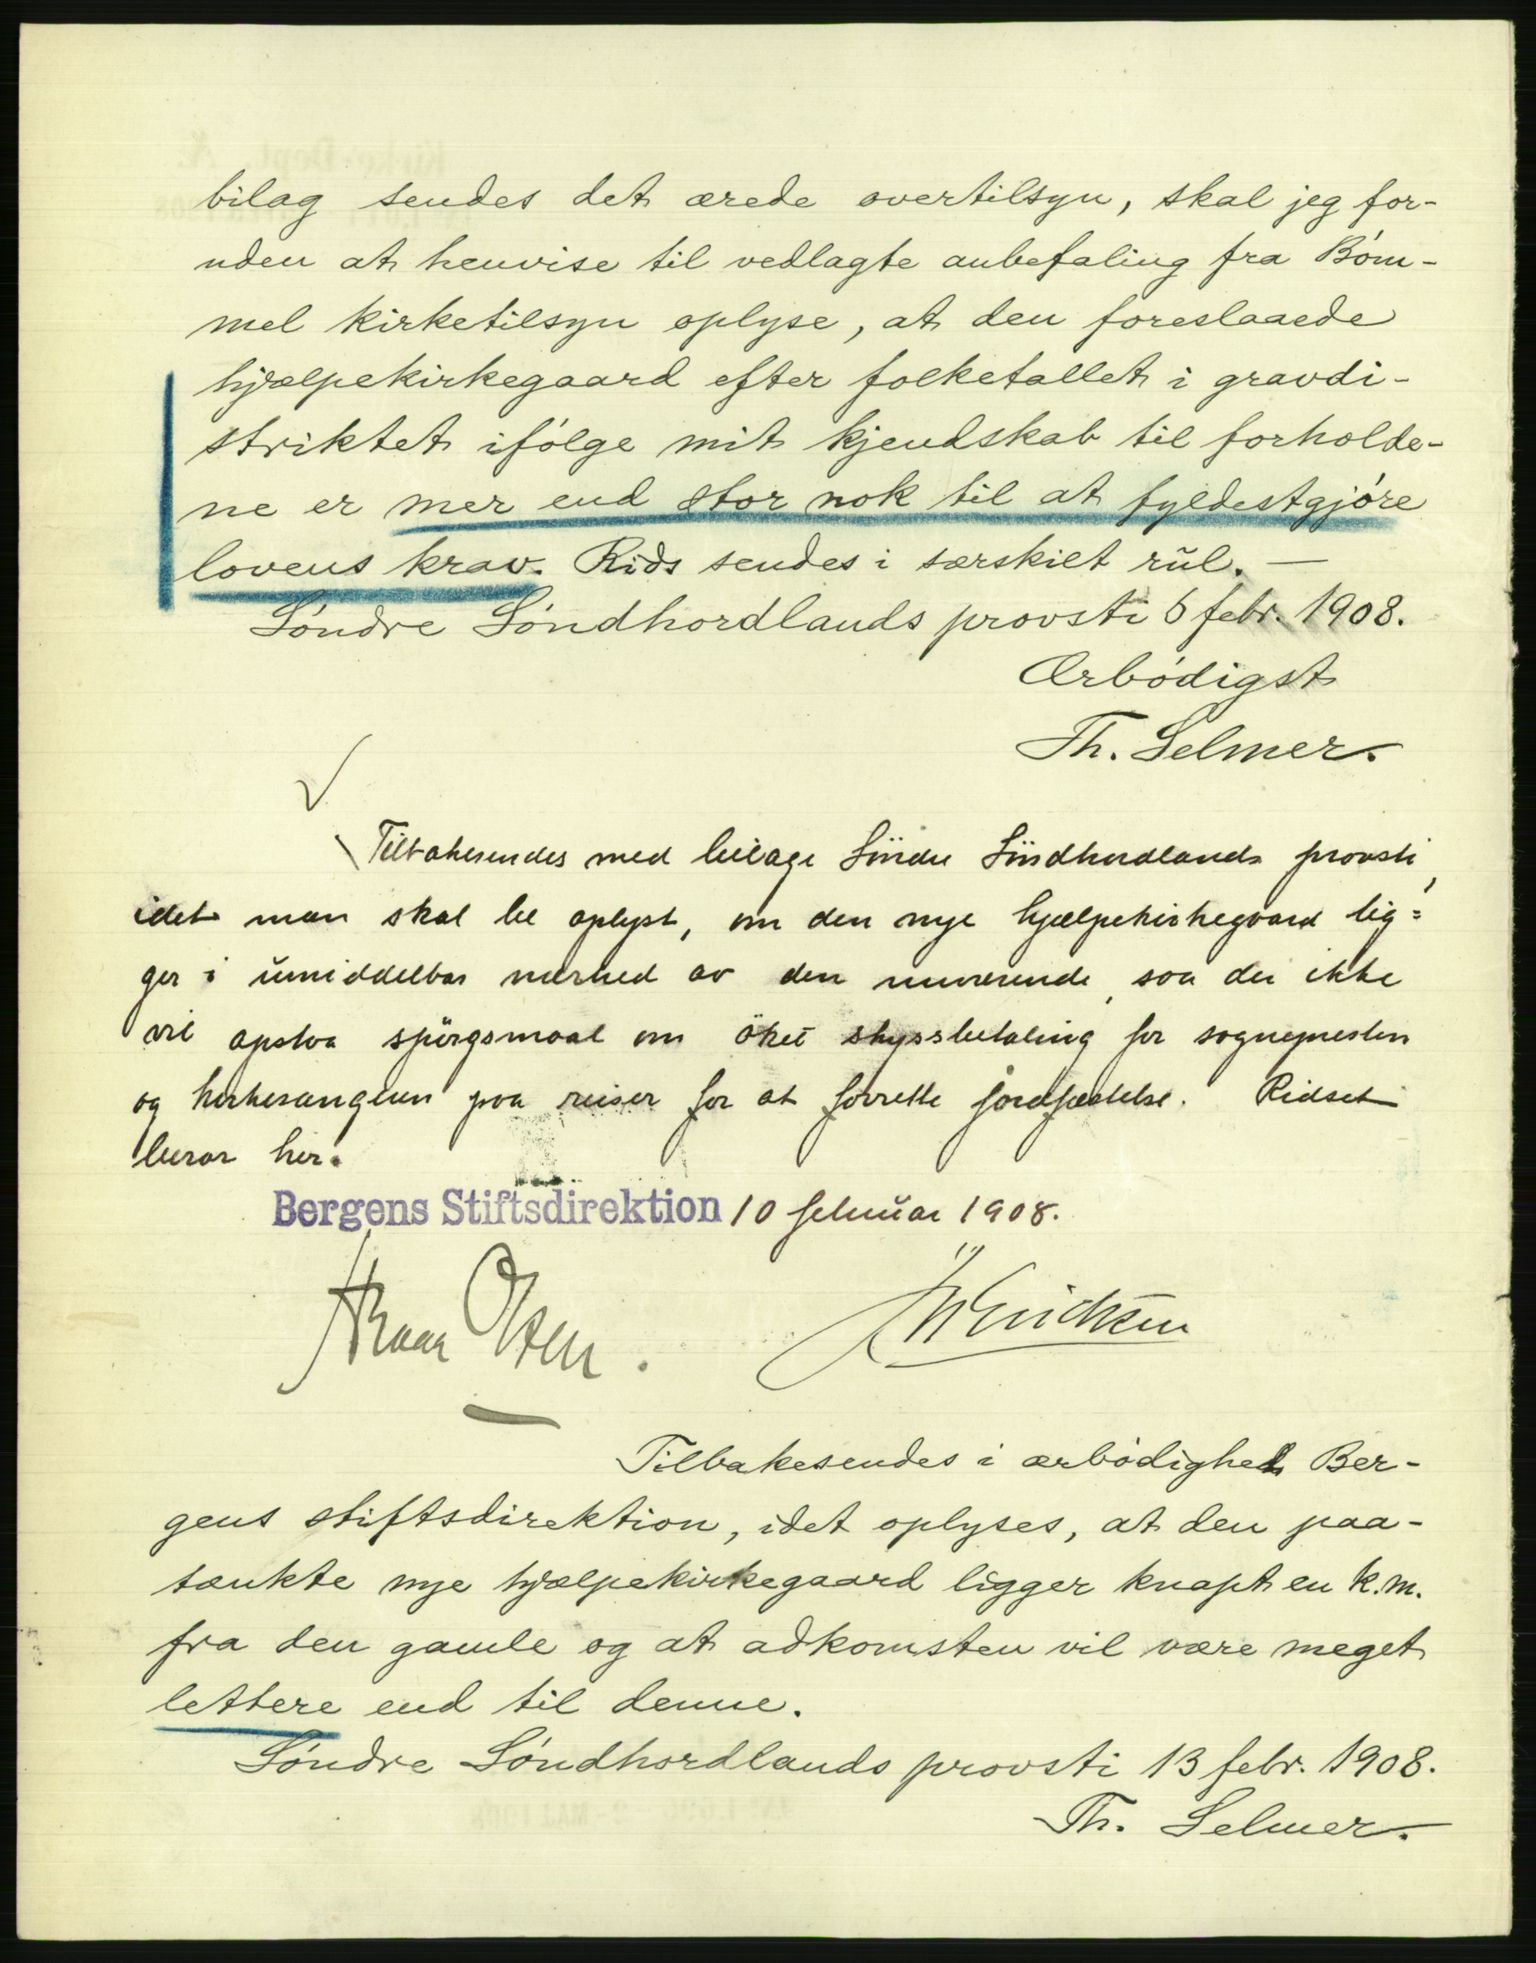 bilag sendes det ærede overtilsyn, skal jeg for-
uden at henvise til vedlagte anbefaling fra Bóm-
mel kirketilsyn oplyse, at den foreslaaede
hjælpekirkegaard efter folketallet i gravdi-
striktet ifólge mit kjendskab til forholde-
ne er mer end stor nok til at fyldestgjóre
lovens krav. Rids sendes i særskilt rŭl. —
Sóndre Sóndhordlands provsti 6 febr. 1908.
Ærbódigst
Th. Selmer.
Tilbakesendes med bilage Söndre Söndhordlands provsti,
idet man skal be oplyst, om den nye hjælpekirkegaard lig=
ger i ŭmiddelbar nærhed av den nuværende, saa der ikke
vil opstaa spörgsmaal om öket skyssbetaling for sognepresten
og kirkesangeren paa reiser for at forrette jordfæstelse. Ridset
beror her.
Bergens Stiftsdirektion 10 februar 1908.
Olsen.
Erichsen
Tilbakesendes i ærbódighet Ber-
gens stiftsdirektion, idet oplyses, at den paa-
tænkte nye hjælpekirkegaard ligger knapt en k.m.
fra den gamle og at adkomsten vil være meget
lettere end til denne.
Sóndre Sóndhordlands provsti 13 febr. 1908.
Th. Selmer.